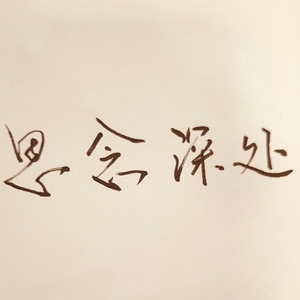 思念深处